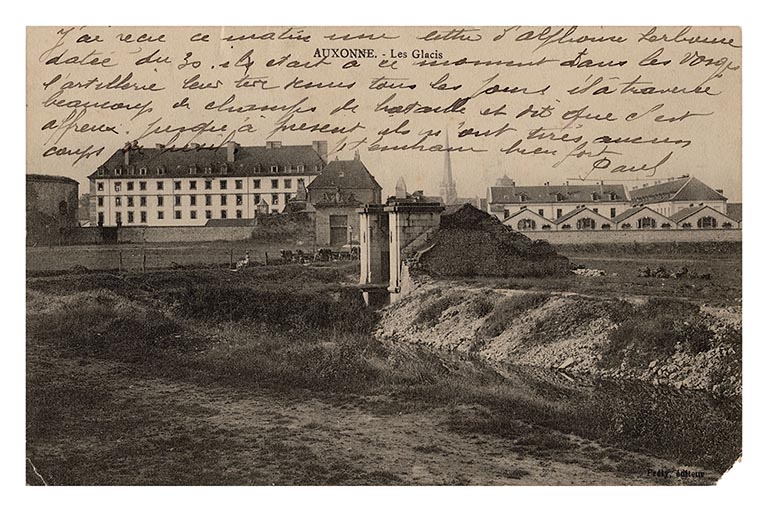 J'ai reçu ce matin une lettre d'alphonse
AUXONNE. - Les Glacis
datée du 30. ils était à ce moment dans les vosges
l'artillerie leur tire dessus tous les jours il a traversé
beaucoup de champs de bataille et dit que c'est
affreux jusqu'à présent ils n'ont tirés aucun
coups de bien fort Paul
Prély, éditeur